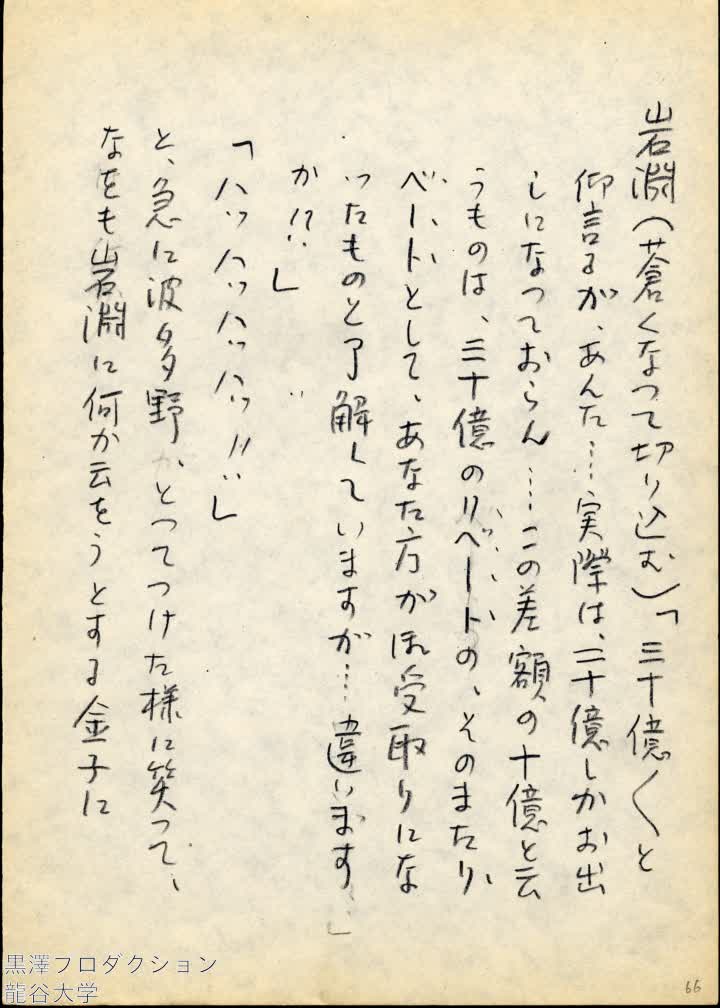 岩淵(蒼くなって切り込む)「三十億〱と
仰言るが、あんた……実際は、二十億しかお出
しになっておらん……この差額の十億と云
うものは、三十億のリベートの、そのまたリ
ベートとして、あなた方がお受取りにな
ったものと了解していますが……違います
か!?」
「ハッハッハッハッ!!」
と、急に波多野がとってつけた様に笑って、
なをも岩淵に何か云をうとする金子に
66
黒澤プロダクション
龍谷大学